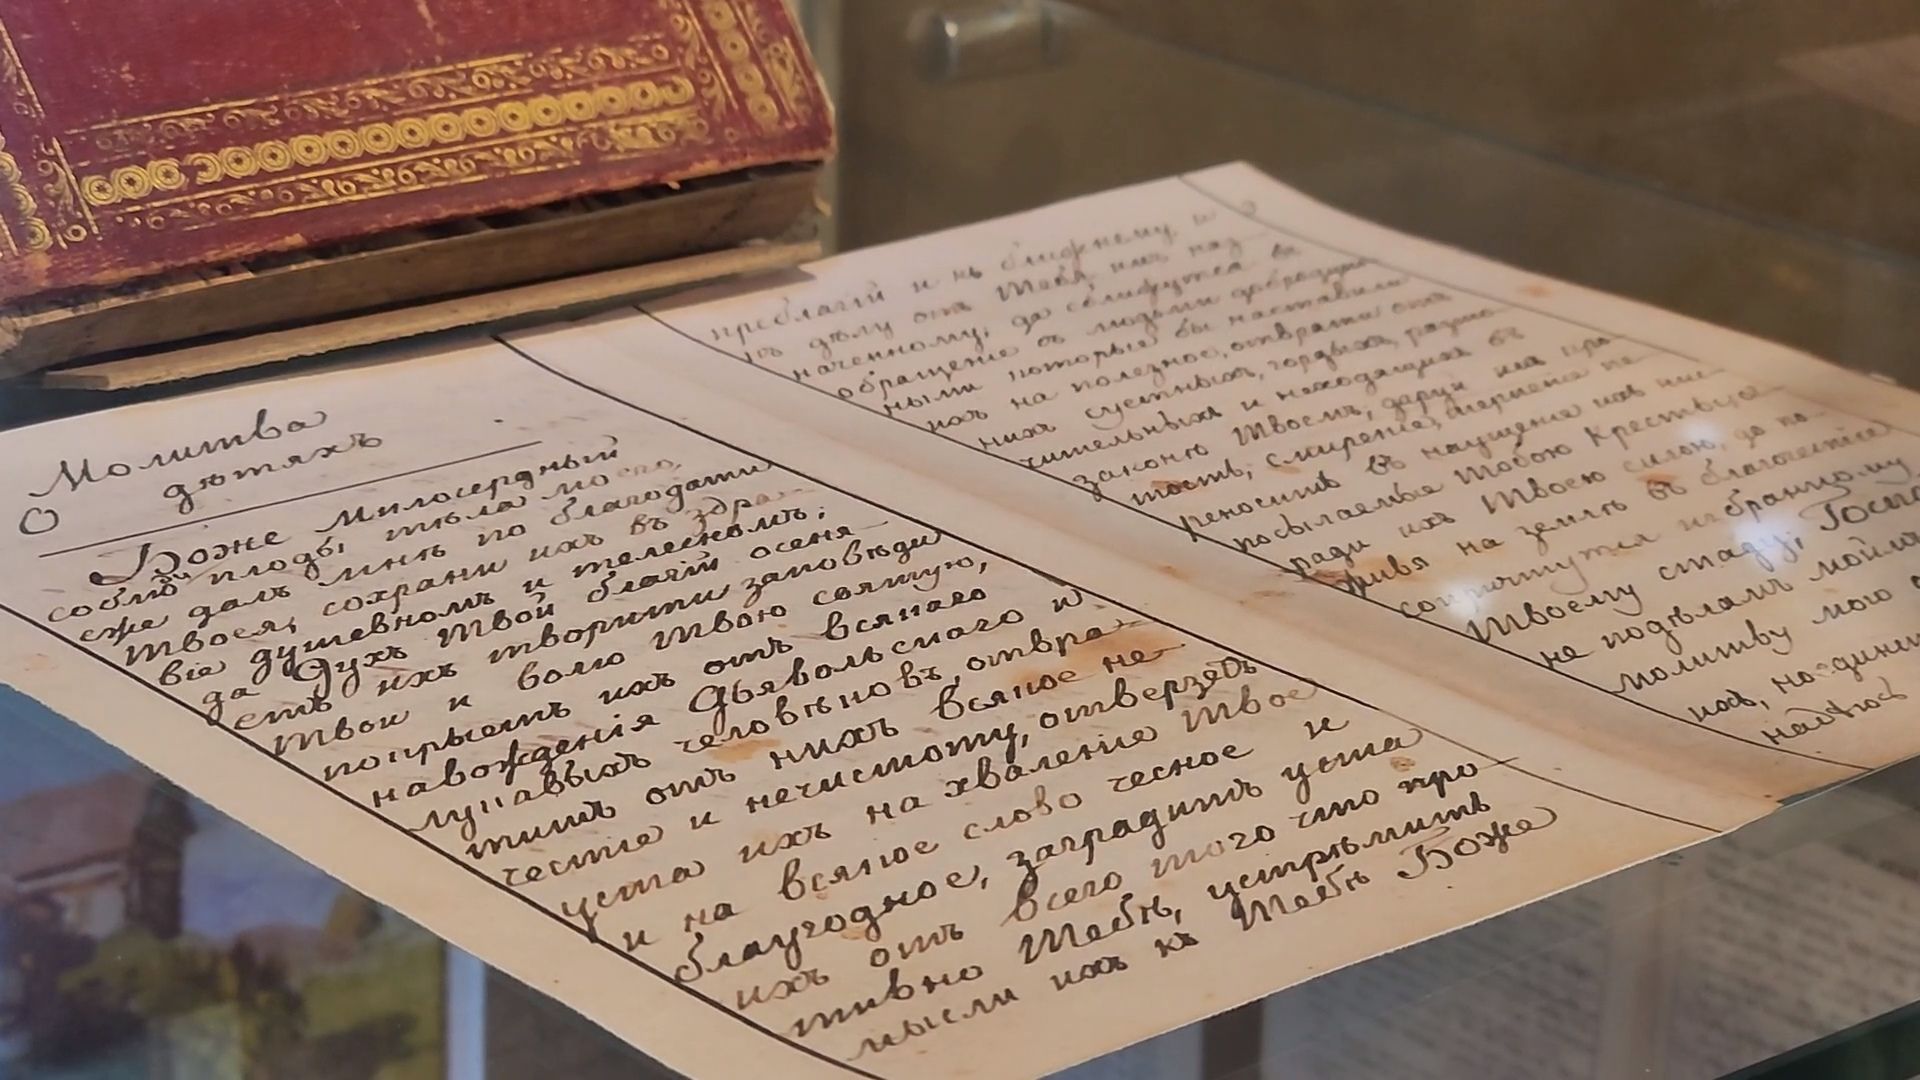 Молитва
О дѣтяхъ
Боже милосердный
соблю плоды тѣла моего,
еже далъ мнѣ по благодати
твоея, сохрани ихъ въ здра-
віе душевномъ и телесномъ;
да Духъ Твой благій осеня-
етъ ихъ творити заповѣди
твои и волю твою святую,
покрыетъ ихъ отъ всякаго
навожденія Дьявольскаго и
лукавыхъ человѣковъ, отвра-
титъ отъ нихъ всякое не-
честіе и нечистоту, отверзетъ
уста ихъ на хваленіе твое
и на всякое слово чесное и
благугодное, заградитъ уста
ихъ отъ всего того что про
тивно Тебѣ, устрѣмитъ
мысли ихъ къ Тебѣ Боже
преблагій и къ ближнему и
къ дѣлу отъ Тебя имъ наз-
наченному, да сближутся въ
обращеніе съ людьми доброду
ными которые бы наставили
ихъ на полезное, отврати отъ
нихъ суетныхъ, гордыхъ,
и неходящихъ въ
законѣ Твоемъ, даруй имъ
тость, смиреніе, терпеніе пе-
реносить въ нащущение ихъ нис
посылаемые тобою Кресты,
ради ихъ Твоею силою, да по-
живя на землѣ въ благочестіе
сопричтутся избранному
Твоему стаду, Госпо
не подѣламъ моимъ
молитву мою
ихъ, но единст
надѣюсь